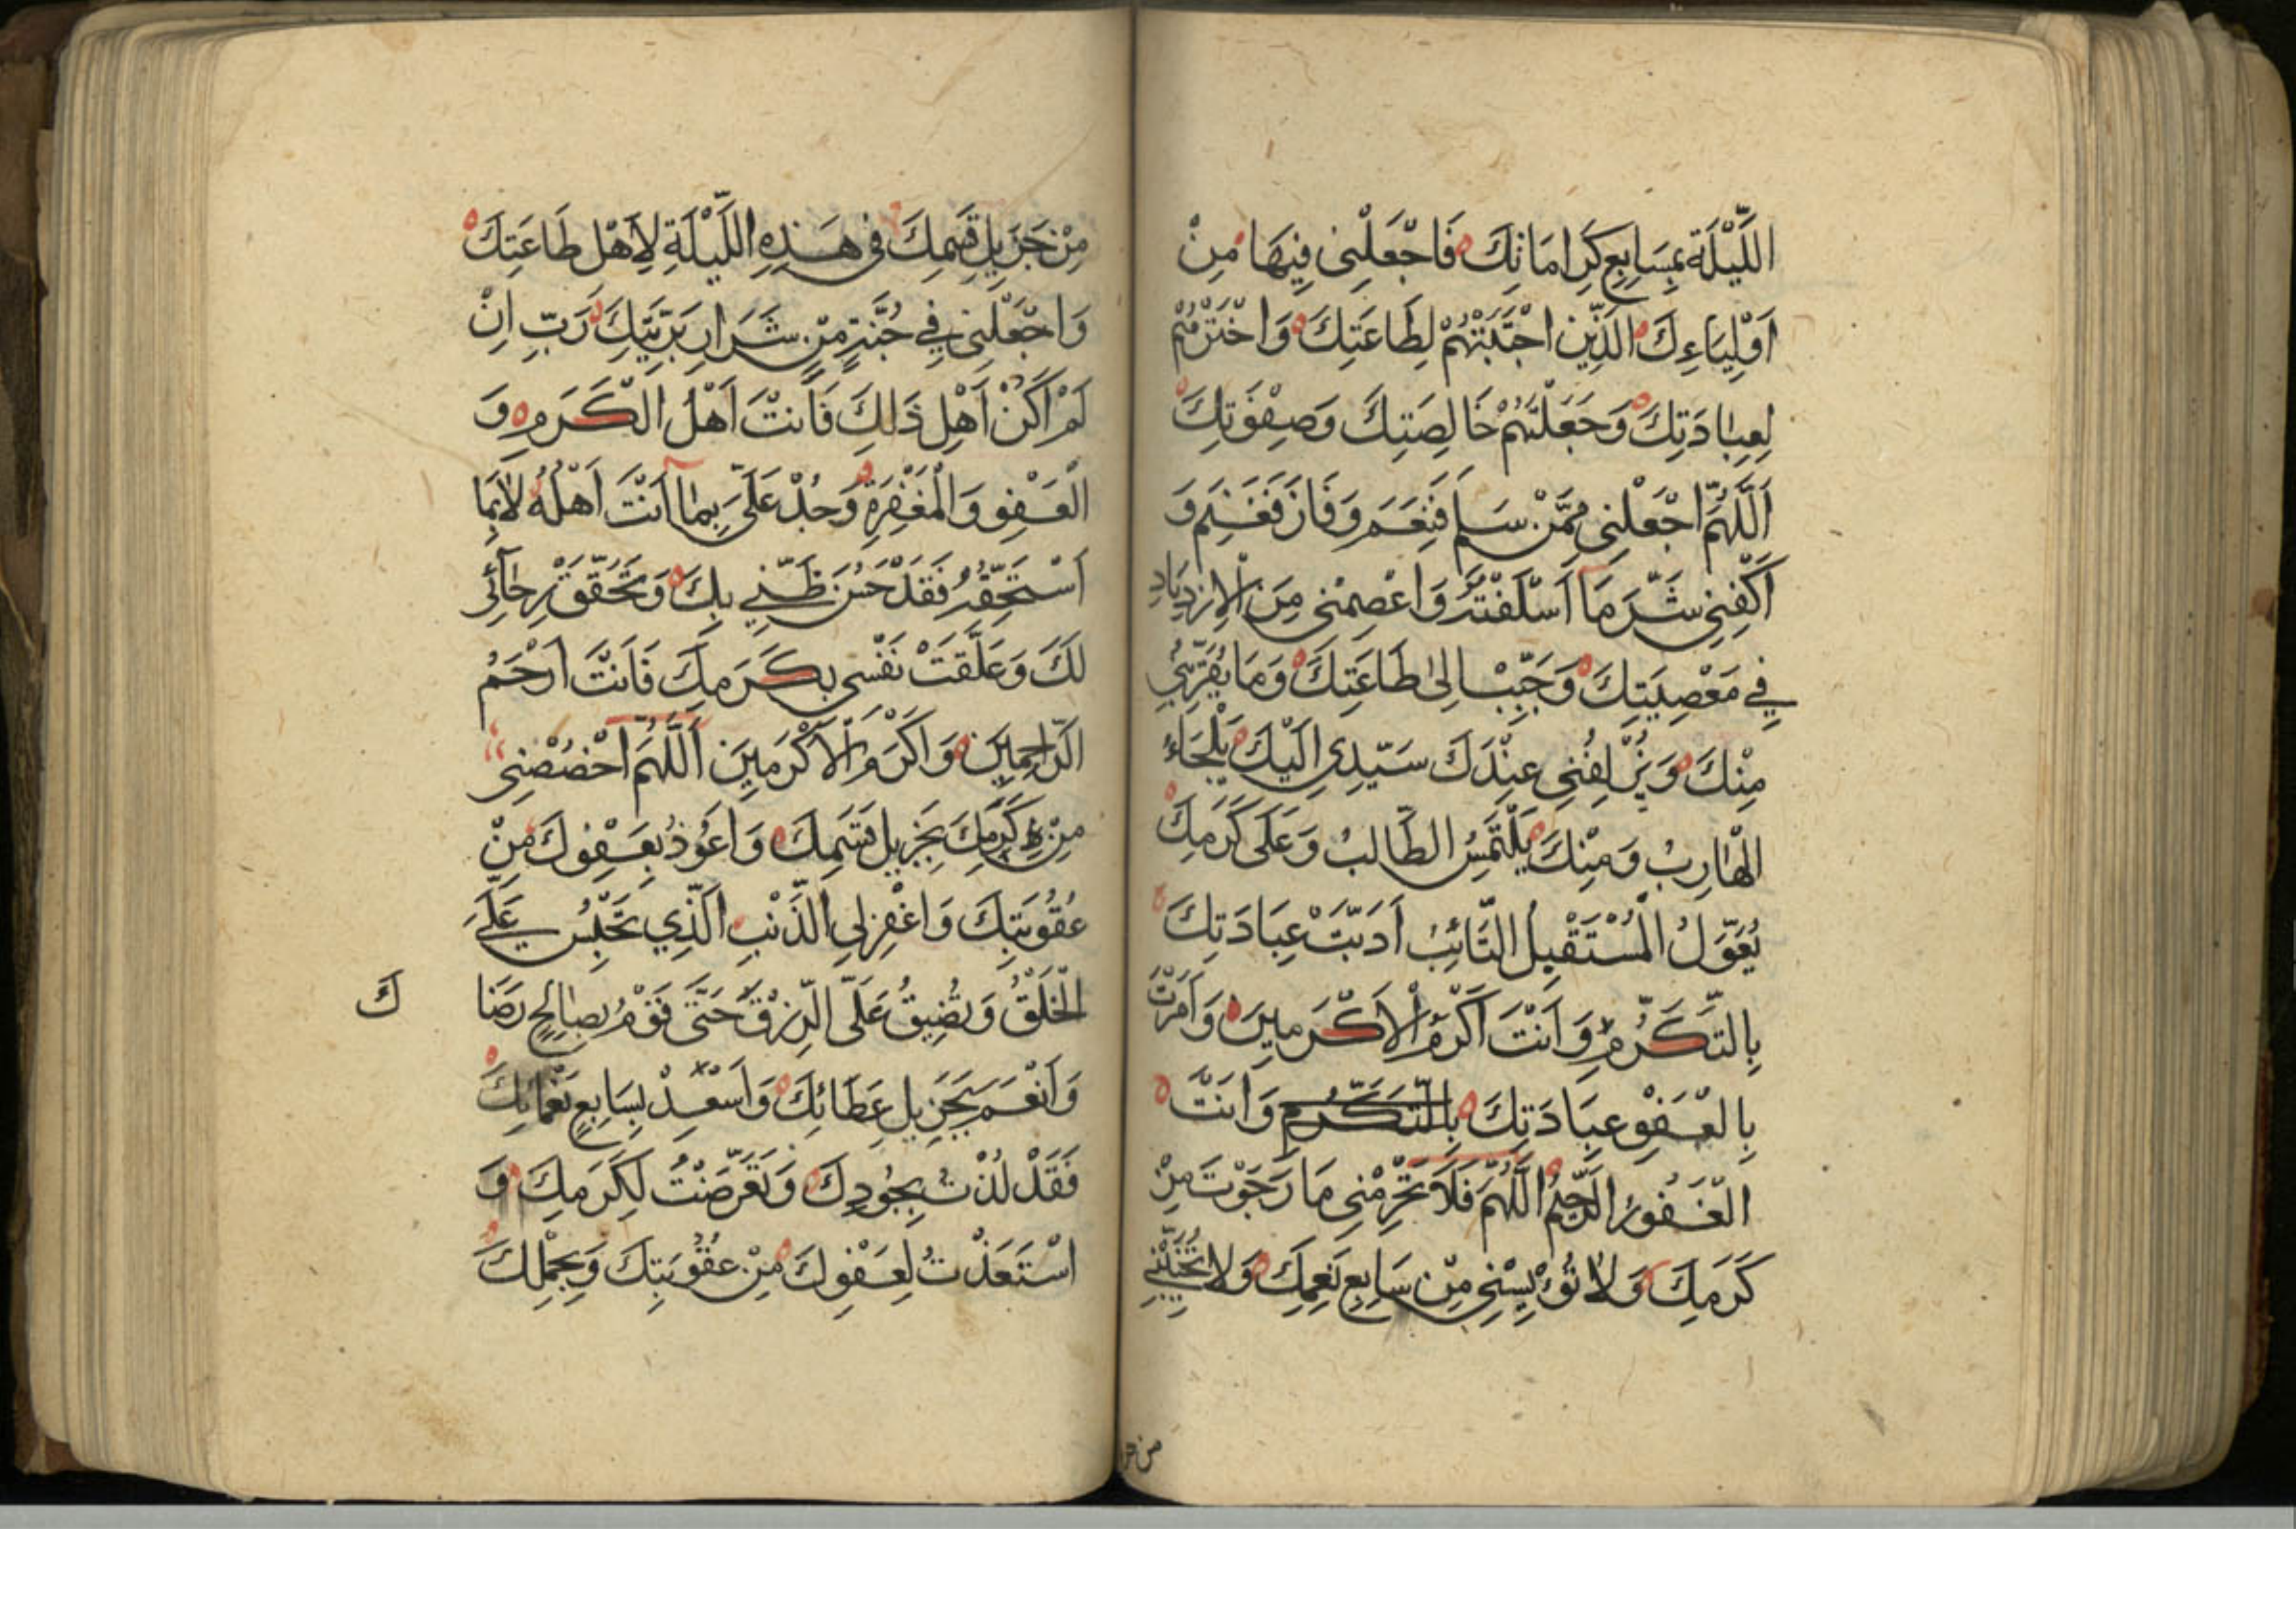 اللَّيْلَةِ بِسَابِغِ كَرَامَاتِكَ فَاجْعَلْنِي فِيهَا مِنْ
اَوْلِيَاءِكَ الَّذِينَ اجْتَبَيْتَهُمْ لِطَاعَتِكَ وَاخْتَرْتَهُمْ
لِعِبَادَتِكَ وَجَعَلْتَهُمْ خَالِصَتِكَ وَصِفْوَتِكَ
اَللّٰهُمَّ اجْعَلْنِي مِمَّنْ سَلِمَ فَنَعِمَ وَفَازَ فَغَنِمَ وَ
اَكْفِنِي شَرَّ مَا اَسْلَفْتُ وَاعْصِمْنِي مِنَ الْاِزْدِيَادِ
فِي مَعْصِيَتِكَ وَحَبِّبْ اِلَىَّ طَاعَتِكَ وَمَا يُقَرِّبُنِي
مِنْكَ وَيُزْلِفُنِي عِنْدَكَ سَيِّدِي اِلَيْكَ يَلْجَاءُ
الْهَارِبُ وَمِنْكَ يَلْتَمِسُ الطَّالِبُ وَعَلَى كَرَمِكَ
يُعَوِّلُ الْمُسْتَقْيِلُ التَّائِبُ اَدَّبْتَ عِبَادَتِكَ
بِالتَّكَرُّمِ وَاَنْتَ اَكْرَمُ الْاَكْرَمِينَ وَاَمَرْتَ
بِالْعَفْوِ عِبَادَتِكَ بِالتَّكَرُّمِ وَاَنْتَ
الْغَفُورُ الرَّحِيمُ اَللّٰهُمَّ فَلَا تَحْرِمْنِي مَا رَجَوْتُ مِنْ
كَرَمِكَ وَلَا تُؤْيِسْنِي مِنْ سَابِغِ نِعَمِكَ وَلَا تُخَيِّبْنِي
مِنْ جَزِيلِ قِسَمِكَ فِي هَذِهِ اللَّيْلَةِ لِاَهْلِ طَاعَتِكَ
وَاجْعَلْنِي فِي جُنَّةٍ مِنْ شَرَارِ بَرِيَّتِكَ رَبِّ اِنْ
لَمْ اَكُنْ اَهْلِ ذَلِكَ فَاَنْتَ اَهْلُ الْكَرَمِ وَ
الْعَفْوِ وَالْمَغْفِرَةِ وَجُدْ عَلَيَّ بِمَا اَنْتَ اَهْلُهُ لَا بِمَا
اَسْتَحِقُّهُ فَقَدْ حَسُنَ ظَنِّي بِكَ وَتَحَقَّقَ رَجَائِي
لَكَ وَعَلَّقَتْ نَفْسِي بِكَرَمِكَ فَاَنْتَ اَرْحَمُ
الرَّاحِمِينَ وَاَكْرَمُ الْاَكْرَمِينَ اَللّٰهُمَّ اخْصُصْنِي
مِنْ كَرَمِكَ بِجَزِيلِ قِسَمِكَ وَاَعُوذُ بِعَفْوِكَ مِنْ
عُقُوبَتِكَ وَاغْفِرْلِي الذَّنْبَ الَّذِي يَحْبِسُ عَلَيَّ
الْخَلْقَ وَيُضِيقُ عَلَيَّ الرِّزْقَ حَتَّى فَوْمُ بِصَالِحِ رِضَا
ك
وَاَنْعَمَ بِجَزِيلِ عَطَائِكَ وَاَسْعَدْ بِسَابِغِ نَعْمَائِكَ
فَقَدْ لُذْتُ بِجُودِكَ وَتَعَرَّضْتُ لِكَرَمِكَ وَ
اسْتَعَذْتُ لِعَفْوِكَ مِنْ عُقُوبَتِكَ وَبِحِلْمِكَ